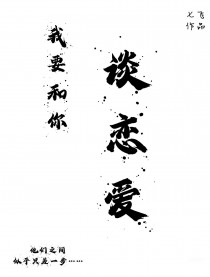 七飞
作品
我要和你
谈恋爱
他们之间
似乎只差一步……